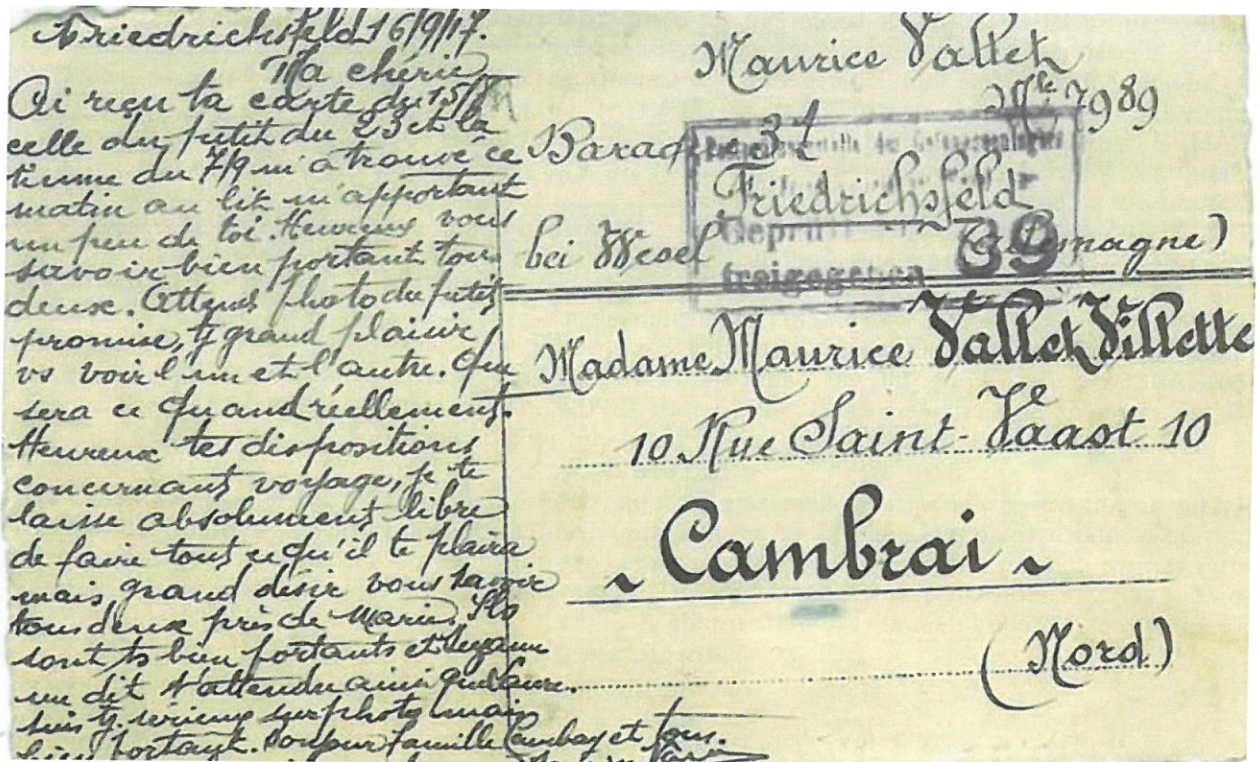 Friedrichsfeld 16/9/17.
Ma chérie
Ai reçu ta carte du 15/8
celle du petit du 23 et la
tienne du 7/9 m'a trouvé ce
matin au lit m'apportant
un peu de toi. Heureux vous
savoir bien portant tous
deux. Attends photo du petit
promise, tj grand plaisir
vs voir l'un et l'autre. Que
sera ce quand réellement.
Heureux tes dispositions
concernant voyage, je te
laisse absolument libre
de faire tout ce qu'il te plaira
mais grand désir vous savoir
tous deux près de Marie. Ils
sont ts bien portants et
me dit t'attendre ainsi que Laure.
suis tj. sérieux sur photo mais
bien portant. Bonjour famille et tous.
Maurice Vallet
Mle 7989
Baraque 34
Friedrichsfeld
bei Wesel (Allemagne)
Geprüft
freigegeben
39
Madame Maurice Vallet Villette
10 Rue Saint-Vaast 10
~ Cambrai ~
(Nord)